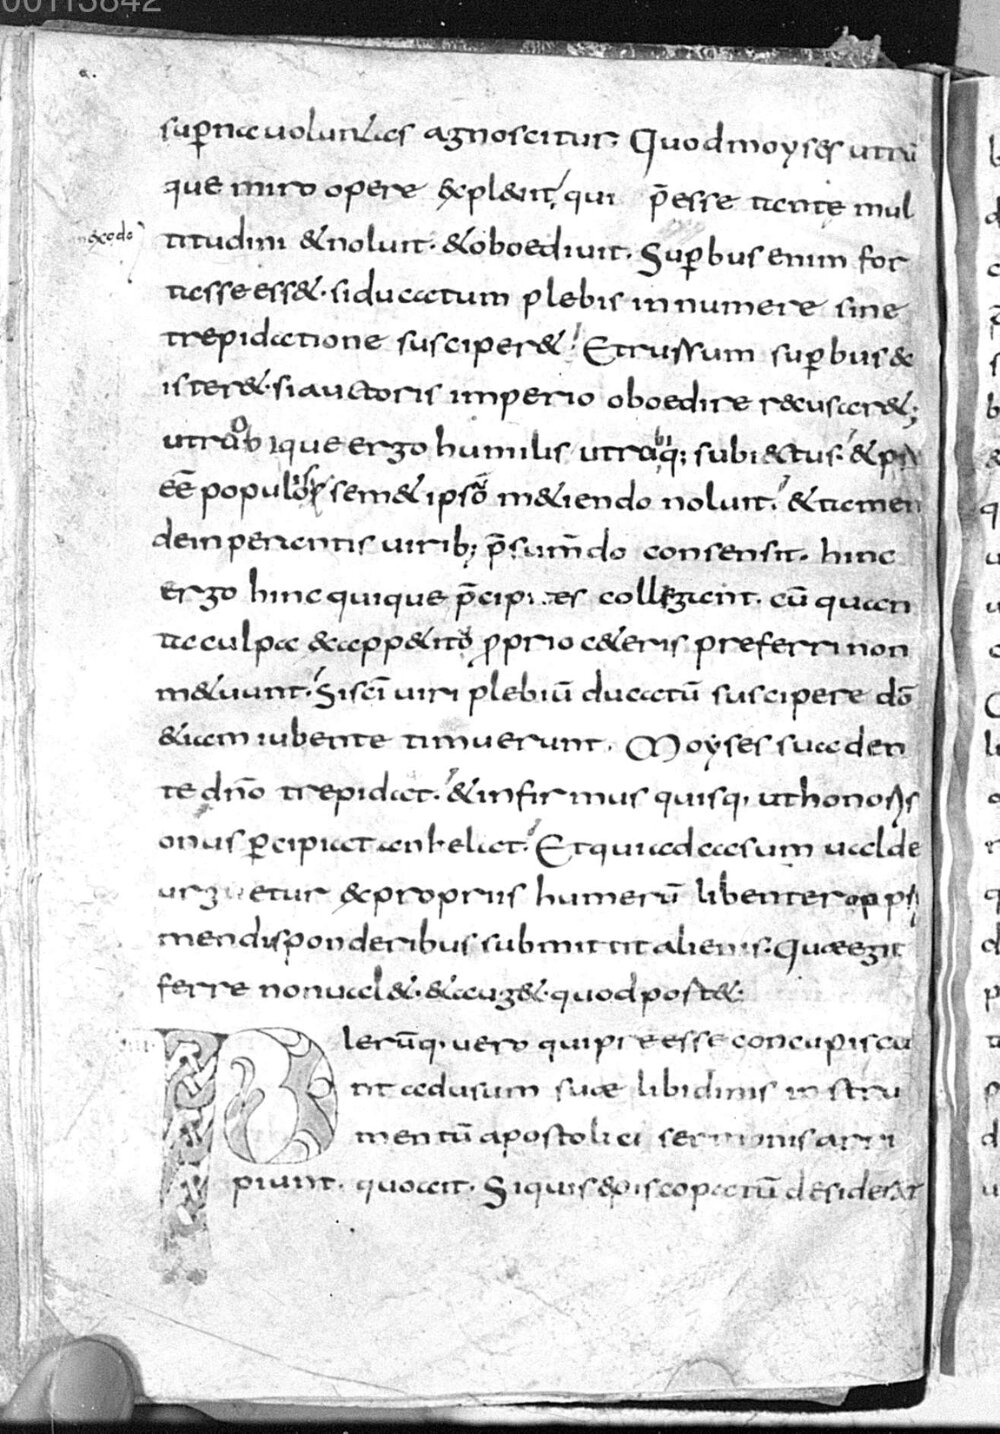 00113842
sup̄nae voluntas agnoscitur; Quod moyses utrū
que miro opere explevit, qui p̄esse tante mul
in exodo
titudini & noluit. & oboedivit. Superbus enim for
tasse ess&. si ducatum plebis innumere sine
trepidatione susciper&. Et russum sup̄bus ex
ister&. si auctoris imperio oboedire recusar&;
utrobique ergo humilis utraq; subiectus. & p̄
eē̄ populis sem&ipsō m&iendo noluit. & tamen
de imperantis virib; p̄sumendo consensit. hinc
ergo hinc quique p̄cipites colligant. cū quan
ta culpa ex app&itō ꝓprio c&eris preferri non
m&uunt. Si sc̄i viri plebiū ducatū suscipere dō
&iam iubente timuerunt. Moyses suaden
te dn̄o trepidat. & infirmus quisq; ut honoris
onus p̄cipiat anhelat. Et qui ad casum valde
urguetur ex propriis humerū libenter opp
mendis ponderibus submittit alienis. Quae egit
ferre non val&. & aug& quod port&;
Plerūq; vero qui preesse concupiscu
nt ad usum suae libidinis instru
mentū apostolici sermonis arri
piunt. quo ait. Si quis episcopatū desiderat